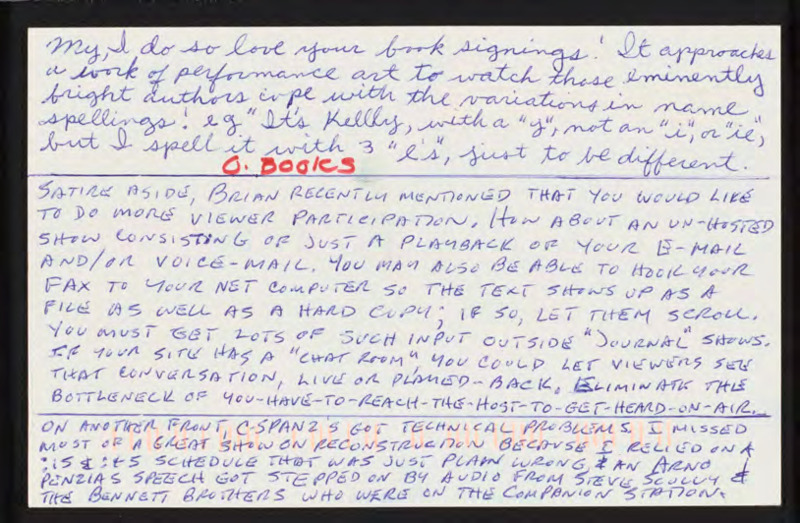 My, I do so love your book signings! It approaches
a work of performance art to watch those eminently
bright authors cope with the variations in name
spellings! eg "It's Kellly, with a "y", not an "i", or "ie",
but I spell it with 3 "l's", just to be different.
O. BOOKS
SATIRE ASIDE, BRIAN RECENTLY MENTIONED THAT YOU WOULD LIKE
TO DO MORE VIEWER PARTICIPATION. HOW ABOUT AN UN-HOSTED
SHOW CONSISTING OF JUST A PLAYBACK OF YOUR E-MAIL
AND/OR VOICE-MAIL. YOU MAY ALSO BE ABLE TO HOOK YOUR
FAX TO YOUR NET COMPUTER SO THE TEXT SHOWS UP AS A
FILE AS WELL AS A HARD COPY; IF SO, LET THEM SCROLL.
YOU MUST GET LOTS OF SUCH INPUT OUTSIDE "JOURNAL" SHOWS.
IF YOUR SITE HAS A "CHAT ROOM", YOU COULD LET VIEWERS SEE
THAT CONVERSATION, LIVE OR PLAYED-BACK. ELIMINATE THE
BOTTLENECK OF YOU-HAVE-TO-REACH-THE-HOST-TO-GET-HEARD-ON-AIR.
ON ANOTHER FRONT, C-SPAN2'S GOT TECHNICAL PROBLEMS. I MISSED
MOST OF A GREAT SHOW ON RECONSTRUCTION BECAUSE I RELIED ON A
:15 & :45 SCHEDULE THAT WAS JUST PLAIN WRONG, & AN ARNO
PENZIAS SPEECH GOT STEPPED ON BY AUDIO FROM STEVE SCULLY &
THE BENNETT BROTHERS WHO WERE ON THE COMPANION STATION.